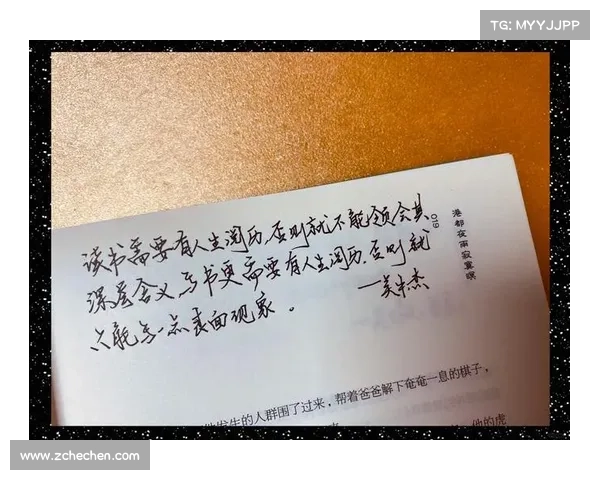 TG: MYYJJPP
港都夜雨寂寞暝
019
读书需要有人生阅历,否则就不能领会其
深层含义,写书更需要有人生阅历,否则就
只能写一点表面现象。
——吴杰
发生的人群围了过来,帮着爸爸解下奄奄一息的棋子,
他的虎
www.zchechen.com